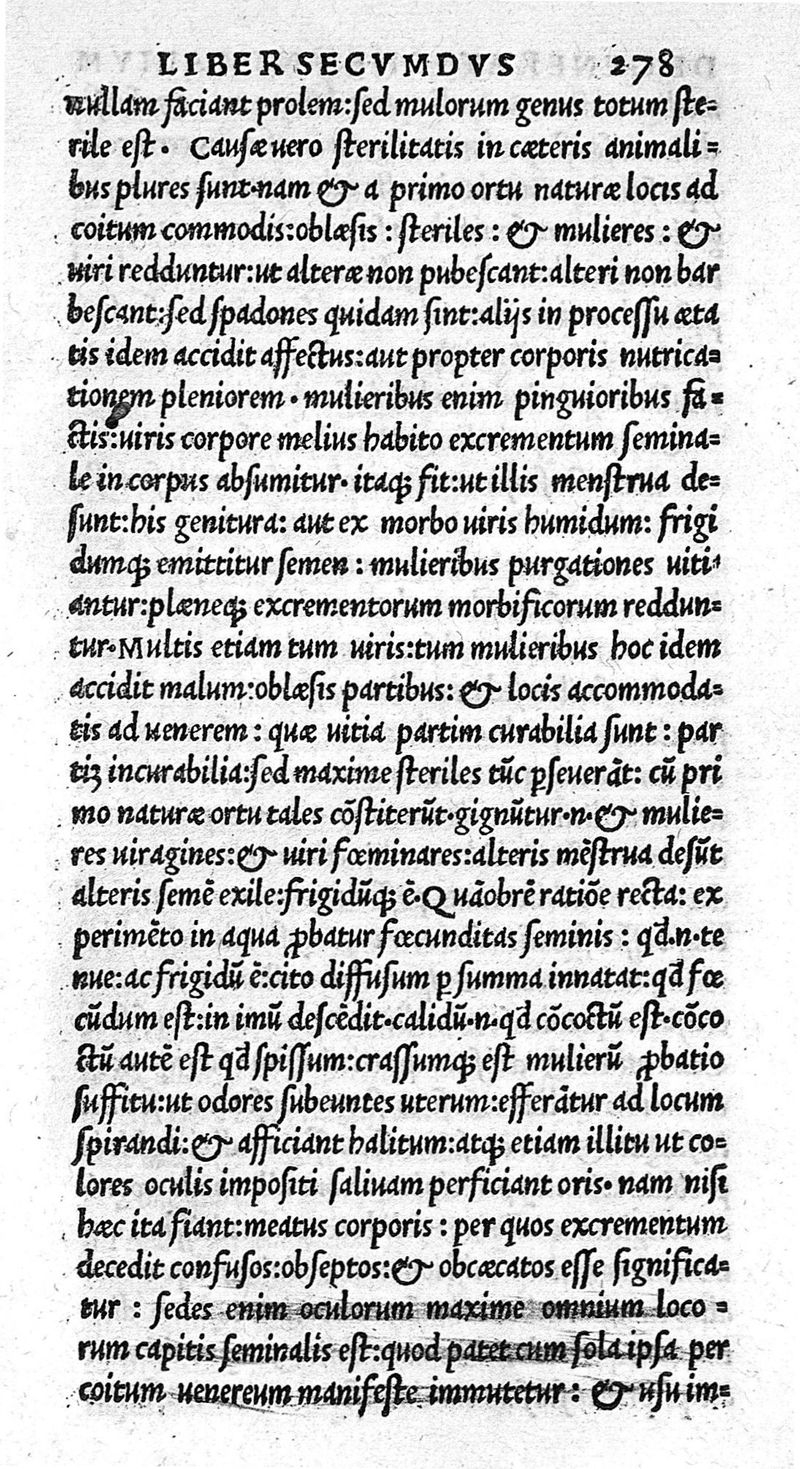 LIBER SECVMDVS 278
nullam faciant prolem:sed mulorum genus totum ste=
rile est. Causæ uero sterilitatis in cæteris animali=
bus plures sunt.nam & a primo ortu naturæ locis ad
coitum commodis:oblæsis: steriles: & mulieres: &
uiri redduntur:ut alteræ non pubescant:alteri non bar
bescant:sed spadones quidam sint:alijs in processu æta
tis idem accidit affectus:aut propter corporis nutrica=
tionem pleniorem. mulieribus enim pinguioribus fa=
ctis:uiris corpore melius habito excrementum semina=
le in corpus absumitur. itaq; fit:ut illis menstrua de=
sunt:his genitura: aut ex morbo uiris humidum: frigi
dumq; emittitur semen: mulieribus purgationes uiti=
antur:plæneq; excrementorum morbificorum reddun=
tur.Multis etiam tum uiris:tum mulieribus hoc idem
accidit malum:oblæsis partibus: & locis accommoda=
tis ad uenerem: quæ uitia partim curabilia sunt: par
tiꝫ incurabilia:sed maxime steriles tũc ꝑseuerãt: cũ pri
mo naturæ ortu tales cõstiterũt.gignũtur.n.& mulie=
res uiragines:& uiri fœminares:alteris mẽstrua desũt
alteris semẽ exile:frigidũq; ẽ.Quãobrẽ ratiõe recta: ex
perimẽto in aqua ꝓbatur fœcunditas seminis: qđ.n.te
nue:ac frigidũ ẽ:cito diffusum ꝑ summa innatat:qđ fœ
cũdum est:in imũ descẽdit.calidũ.n.qđ cõcoctũ est.cõco
ctũ autẽ est qđ spissum:crassumq; est mulierũ ꝓbatio
suffitu:ut odores subeuntes uterum:efferãtur ad locum
spirandi:& afficiant halitum:atq; etiam illitu ut co=
lores oculis impositi saliuam perficiant oris. nam nisi
hæc ita fiant:meatus corporis: per quos excrementum
decedit confusos:obseptos:& obcæcatos esse significa=
tur: sedes enim oculorum maxime omnium loco=
rum capitis seminalis est:quod patet cum sola ipsa per
coitum uenereum manifeste immutetur: & usu im=